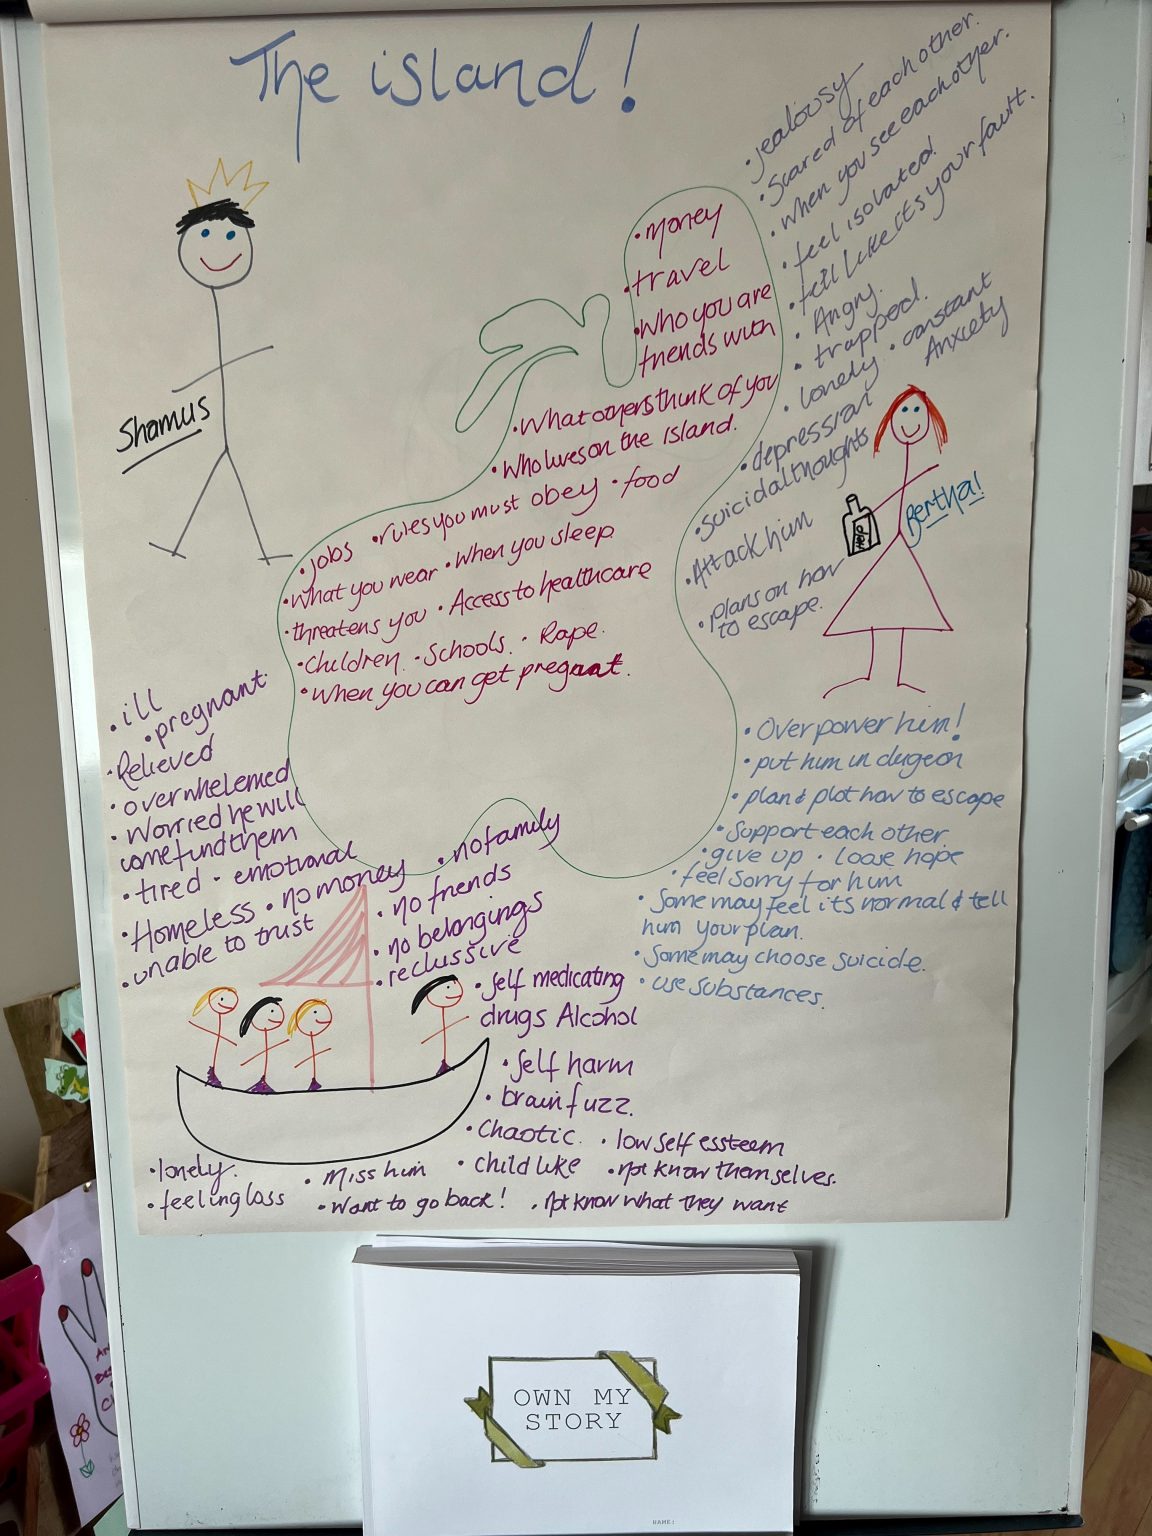 The island!
Shamus
• Money
• travel
• Who you are
friends with
• What others think of you
• Who lives on the Island.
• rules you must obey • food
• jobs
• what you wear • When you sleep
• threatens you • Access to healthcare
• Children. • Schools. • Rape.
• When you can get pregnant.
• jealousy
• Scared of each other.
• when you see each other.
• feel isolated!
• fell like its your fault.
• Angry.
• trapped.
• lonely • constant
Anxiety
• depression
• Suicidal thoughts
• Attack him
• plans on how
to escape.
Bertha!
Help
• Overpower him!
• put him in dugeon
• plan & plot how to escape
• Support each other
• give up • loose hope
• feel sorry for him
• Some may feel its normal & tell
him your plan.
• Some may choose suicide.
• use substances.
• ill
• pregnant
• Relieved
• overwhelemed
• Worried he will
come find them
• tired • emotional
• Homeless • no money
• unable to trust
• no family
• no friends
• no belongings
• reclussive
• Self medicating
drugs Alcohol
• Self harm
• brain fuzz.
• Chaotic. • low self essteem
• child like • not know themselves.
• lonely.
• feeling loss
• Miss him
• Want to go back! • Not know what they want
OWN MY
STORY
NAME: